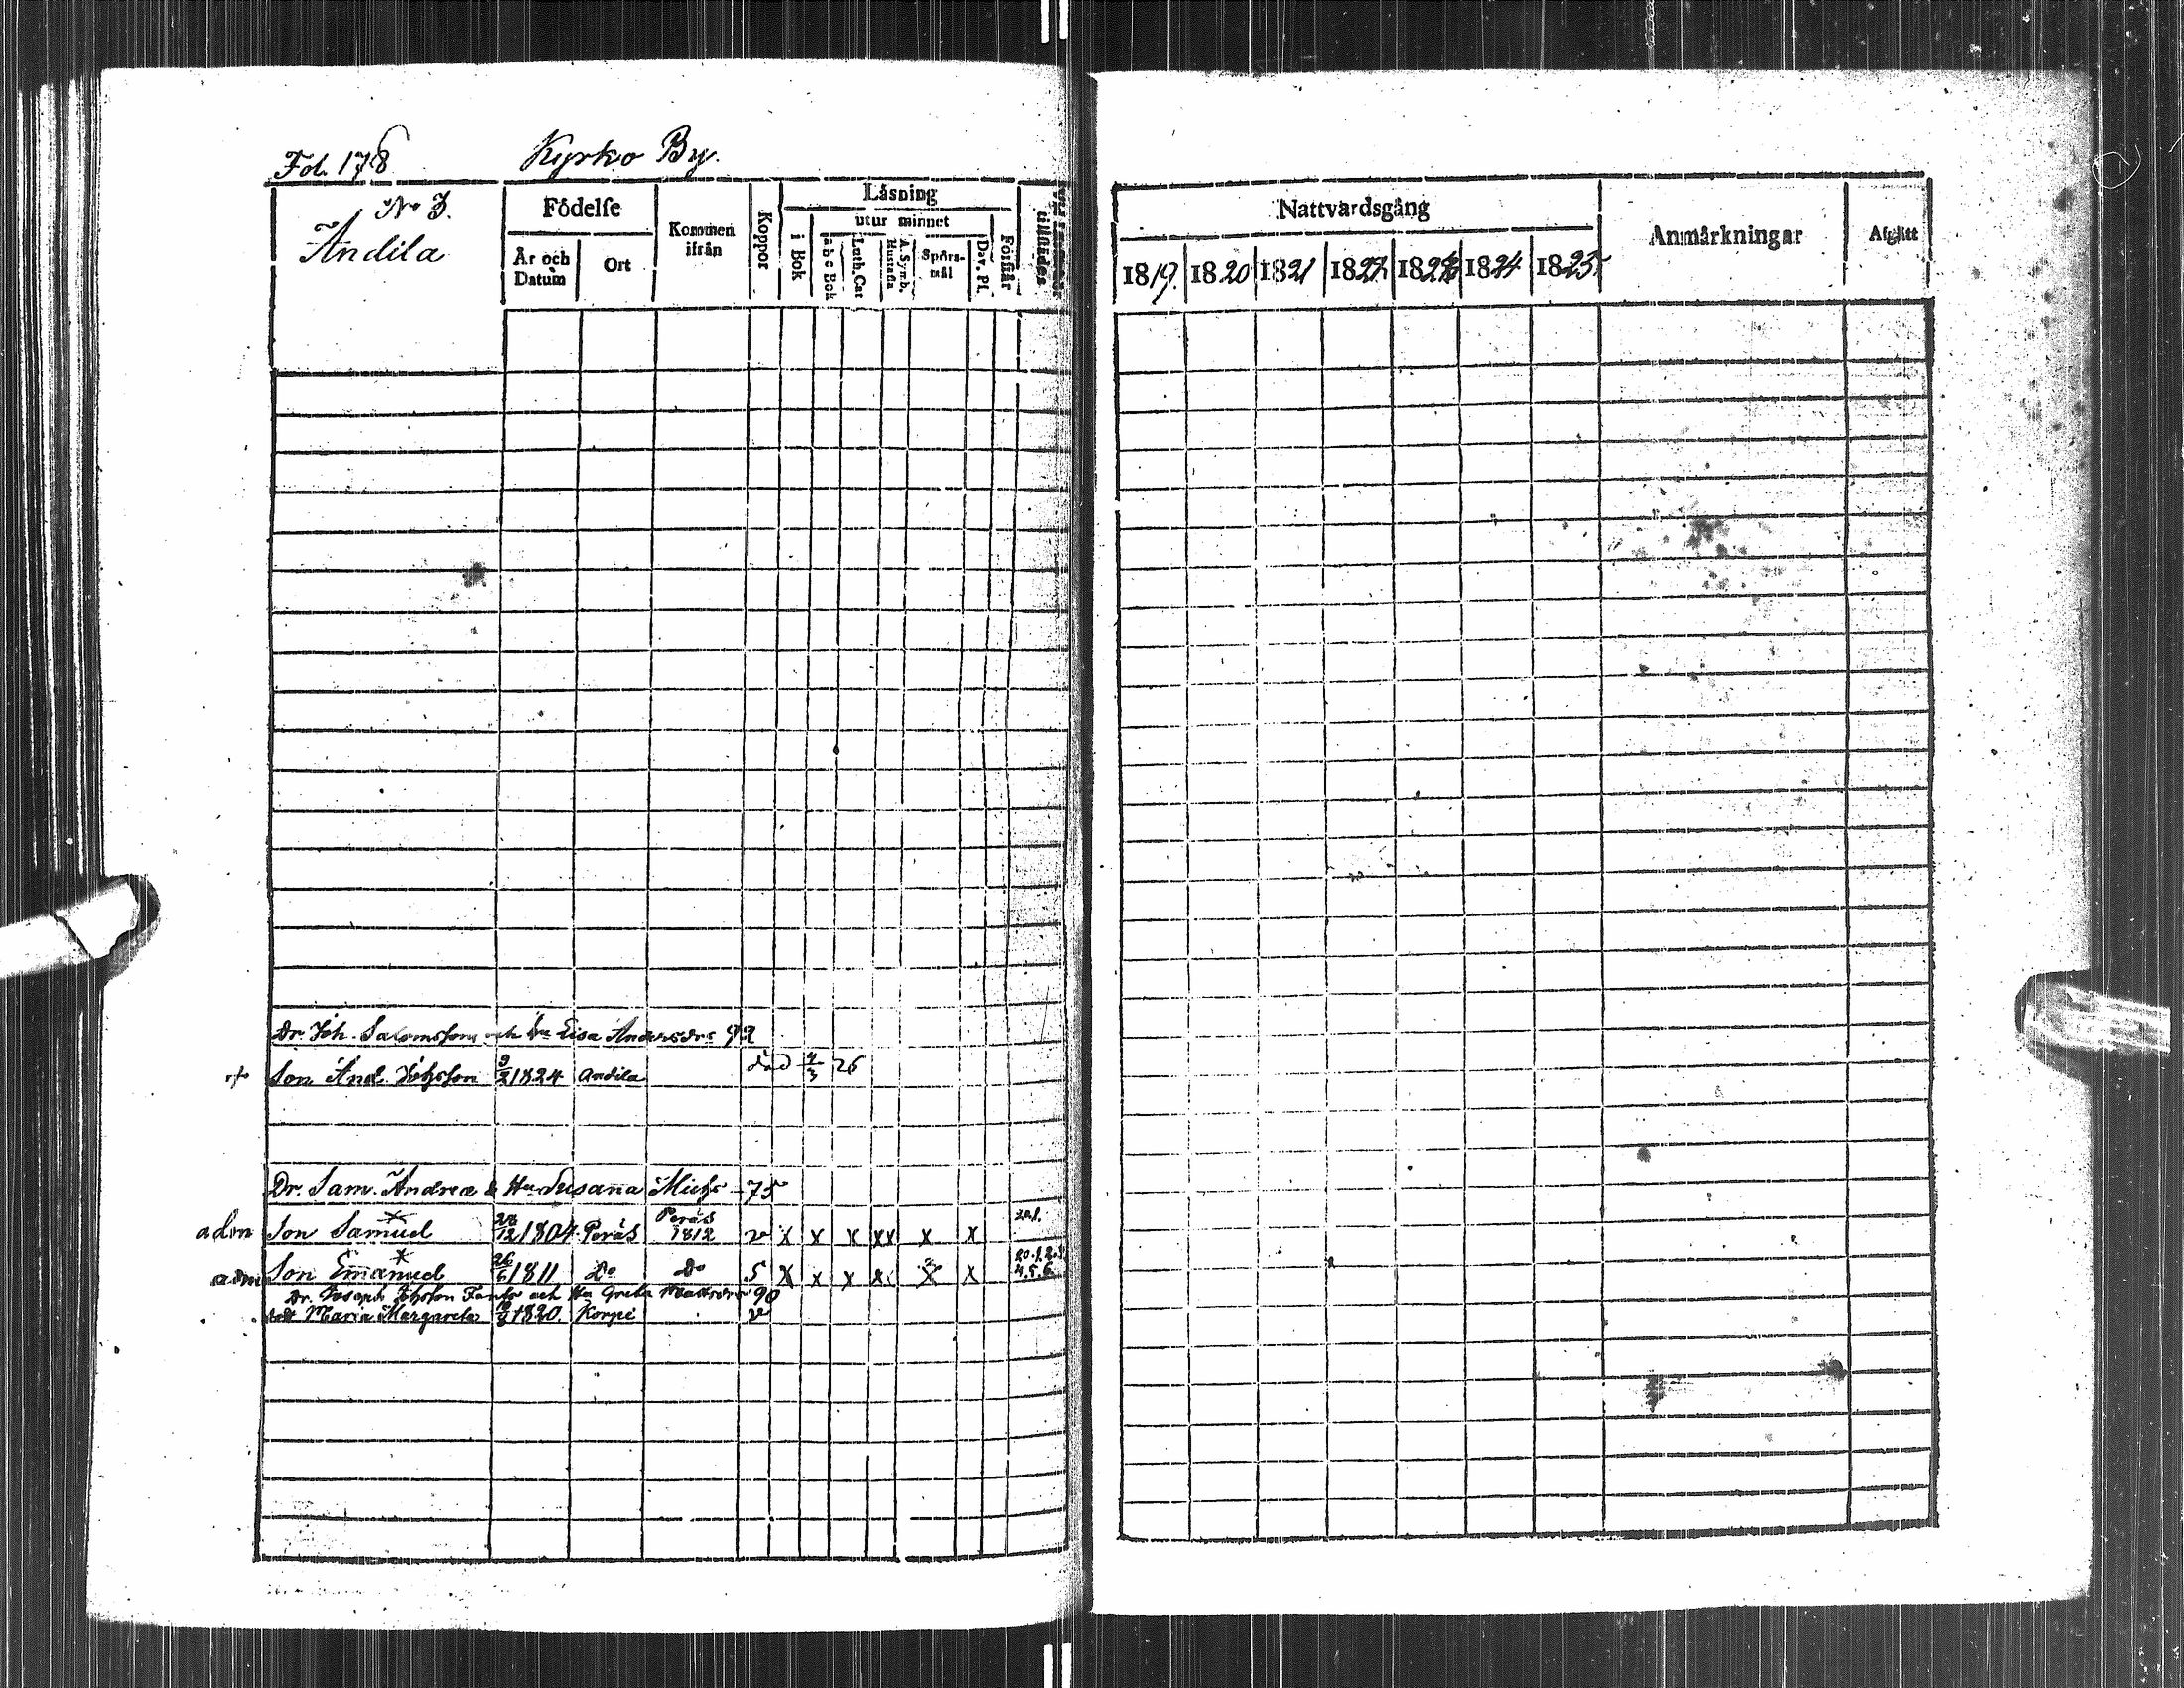 Fol. 178 Kyrko By.
No 3.
Andila
Födelse
År och Datum
Ort
Kommen ifrån
Koppor
Läsning
i Bok
utur minnet
a b c Bok
Luth. Cat
A. Symb. Hustafla
Spörsmål
Dav. Ps.
Förstår
Nattvardsgång
1819. 1820 1821 1822 1823 1824 1825
Anmärkningar
Afgått
Dr. Joh. Salomsson och Hu Lisa Andersdr 92
+ Son And. Johsson 9/2 1824 Andila död 4/3 26
Dr. Sam. Andrea & Hu Susana Michs 75
adm Son Samuel 28/12 1804 Perås Perås 1812 v x x x xx x x 20.1.
adm Son Emanuel 26/6 1811 Do Do 5 x x x x x x 20.1.2.3. 4.5.6.
Dr. Joseph Johsson och Hu Greta 90
dott Maria Margareta 1820. Korpi v